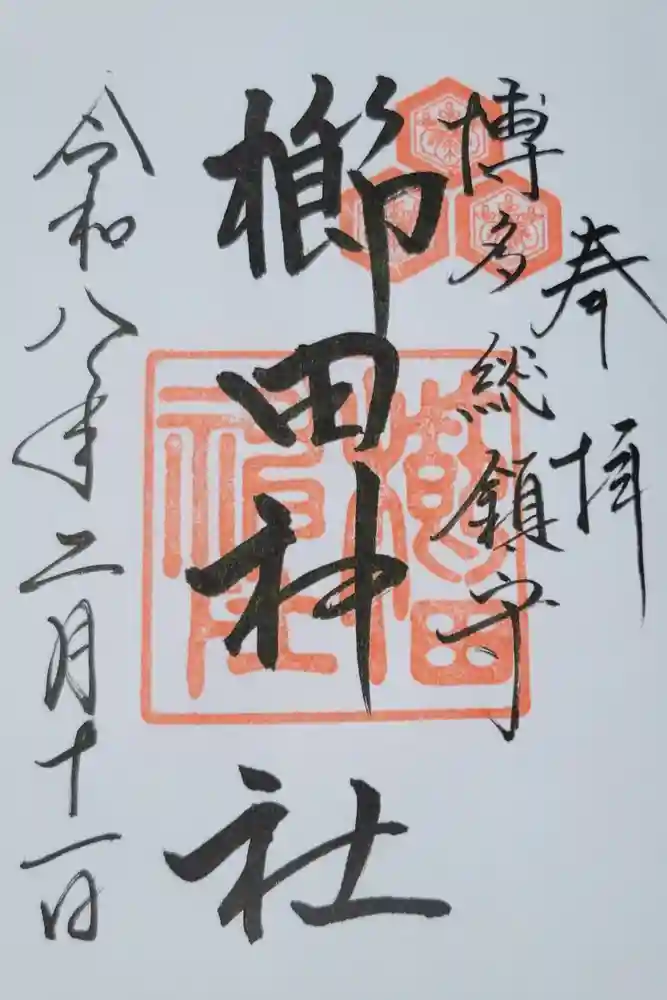 奉拝
博多総鎮守
櫛田神社
令和八年二月十一日